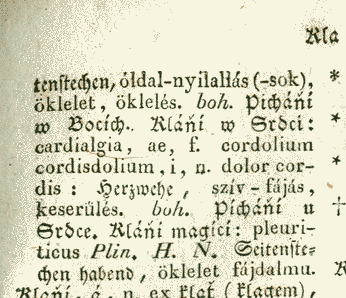 Kla
tenſtechen, óldal-nyilallás (-ſok), *
öklelet, öklelés. boh. Pícháńí
w Bocých. Kláńí w Srdci: *
cardialgia, ae, f. cordolium
cordisdolium, i, n. dolor cor- *
dis: Herzwehe, szív-fájás,
keserülés. boh. Pícháńí u †
Srdce. Kláńí magici: pleuri-
ticus Plin. H. N. Seitenſte-
chen habend, öklelet fájdalmu.
Kláńí, á, n. ex klat (klagem),